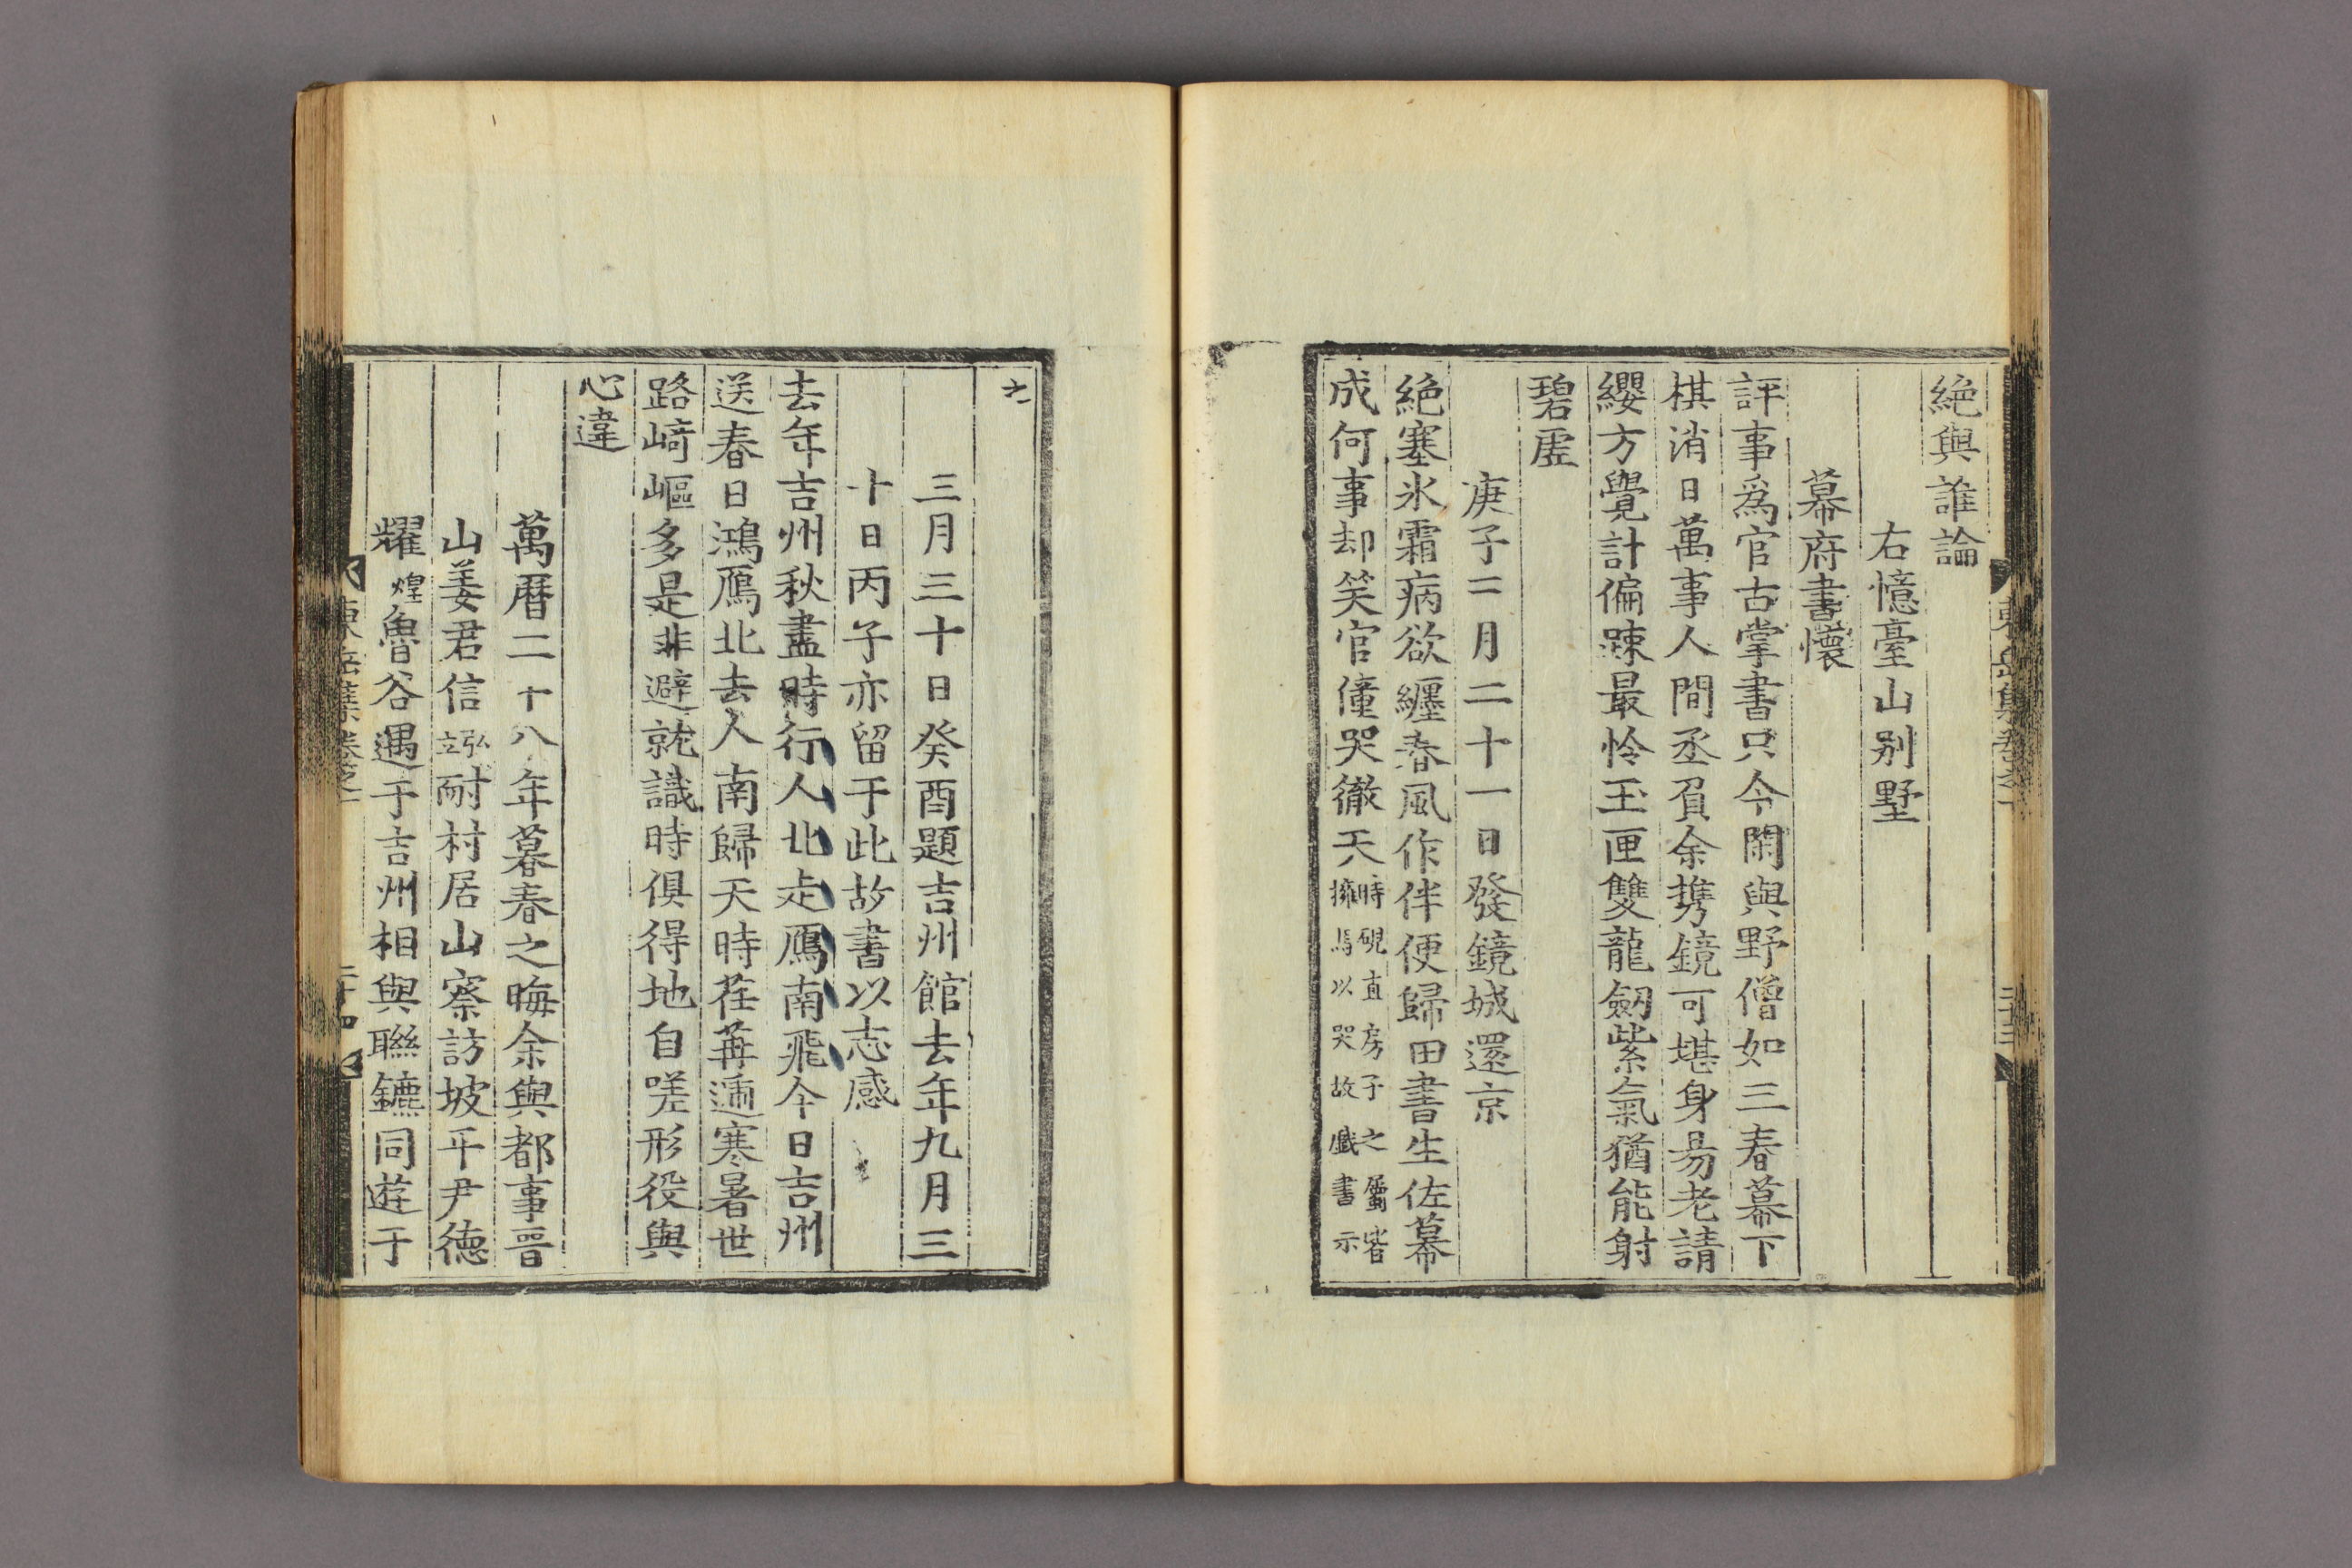 絶與誰論
右憶臺山別墅
幕府書懷
評事爲官古掌書只今閑與野僧如三春幕下
棋消日萬事人間丞負余携鏡可堪身昜老請
纓方覺計偏踈最怜玉匣雙龍劒紫氣猶能射
碧虛
庚子二月二十一日發鏡城還京
絶塞氷霜病欲纏春風作伴便歸田書生佐幕
成何事却笑官僮哭徹天時硯直房子之屬皆
擁馬以哭故戱書示
之
三月三十日癸酉題吉州館去年九月三
十日丙子亦留于此故書以志感
去年吉州秋盡時行人北走鴈南飛今日吉州
送春日鴻鴈北去人南歸天時荏苒逓寒暑世
路﨑嶇多是非避就識時俱得地自嗟形役與
心違
萬曆二十八年暮春之晦余與都事晋
山姜君信弘立耐村居山察訪坡平尹德
耀煌魯谷遇于吉州相與聯鑣同遊于
東岳集卷之一
二十四